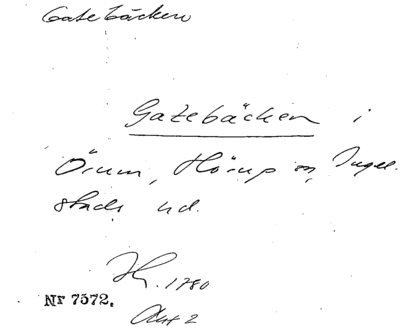 Gatebäcken
Gatebäcken i
Örum, Hörup sn, Ingel-
stads hd.
H. 1780
Nr 7572.
Akt 2